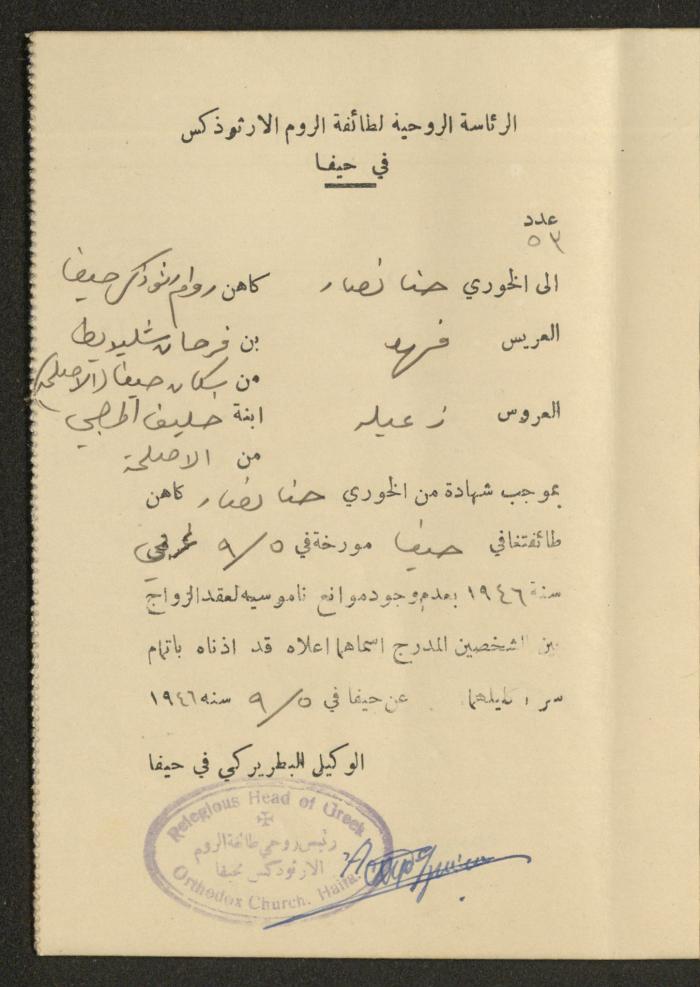 الرئاسة الروحية لطائفة الروم الارثوذكس
في حيفا
عدد
٥٣
الى الخوري حنا نصار كاهن روم ارثوذكس حيفا
العريس فهد بن فرحان
من سكان حيفا (الاصلحة)
العروس زعيله ابنة خليف
من الاصلحة
بموجب شهادة من الخوري حنا نصار كاهن
طائفتنا في حيفا مورخة في ٩/٥
سنة ١٩٤٦ بعدم وجود موانع ناموسيه لعقد الزواج
بين الشخصين المدرج اسماهما اعلاه قد اذناه باتمام
سر اكليلهما. عن حيفا في ٩/٥ سنه ١٩٤٦
الوكيل البطريركي في حيفا
Relegious Head of Greek
رئيس روحي طائفة الروم
الارثوذكس بحيفا
Orthodox Church. Haifa.